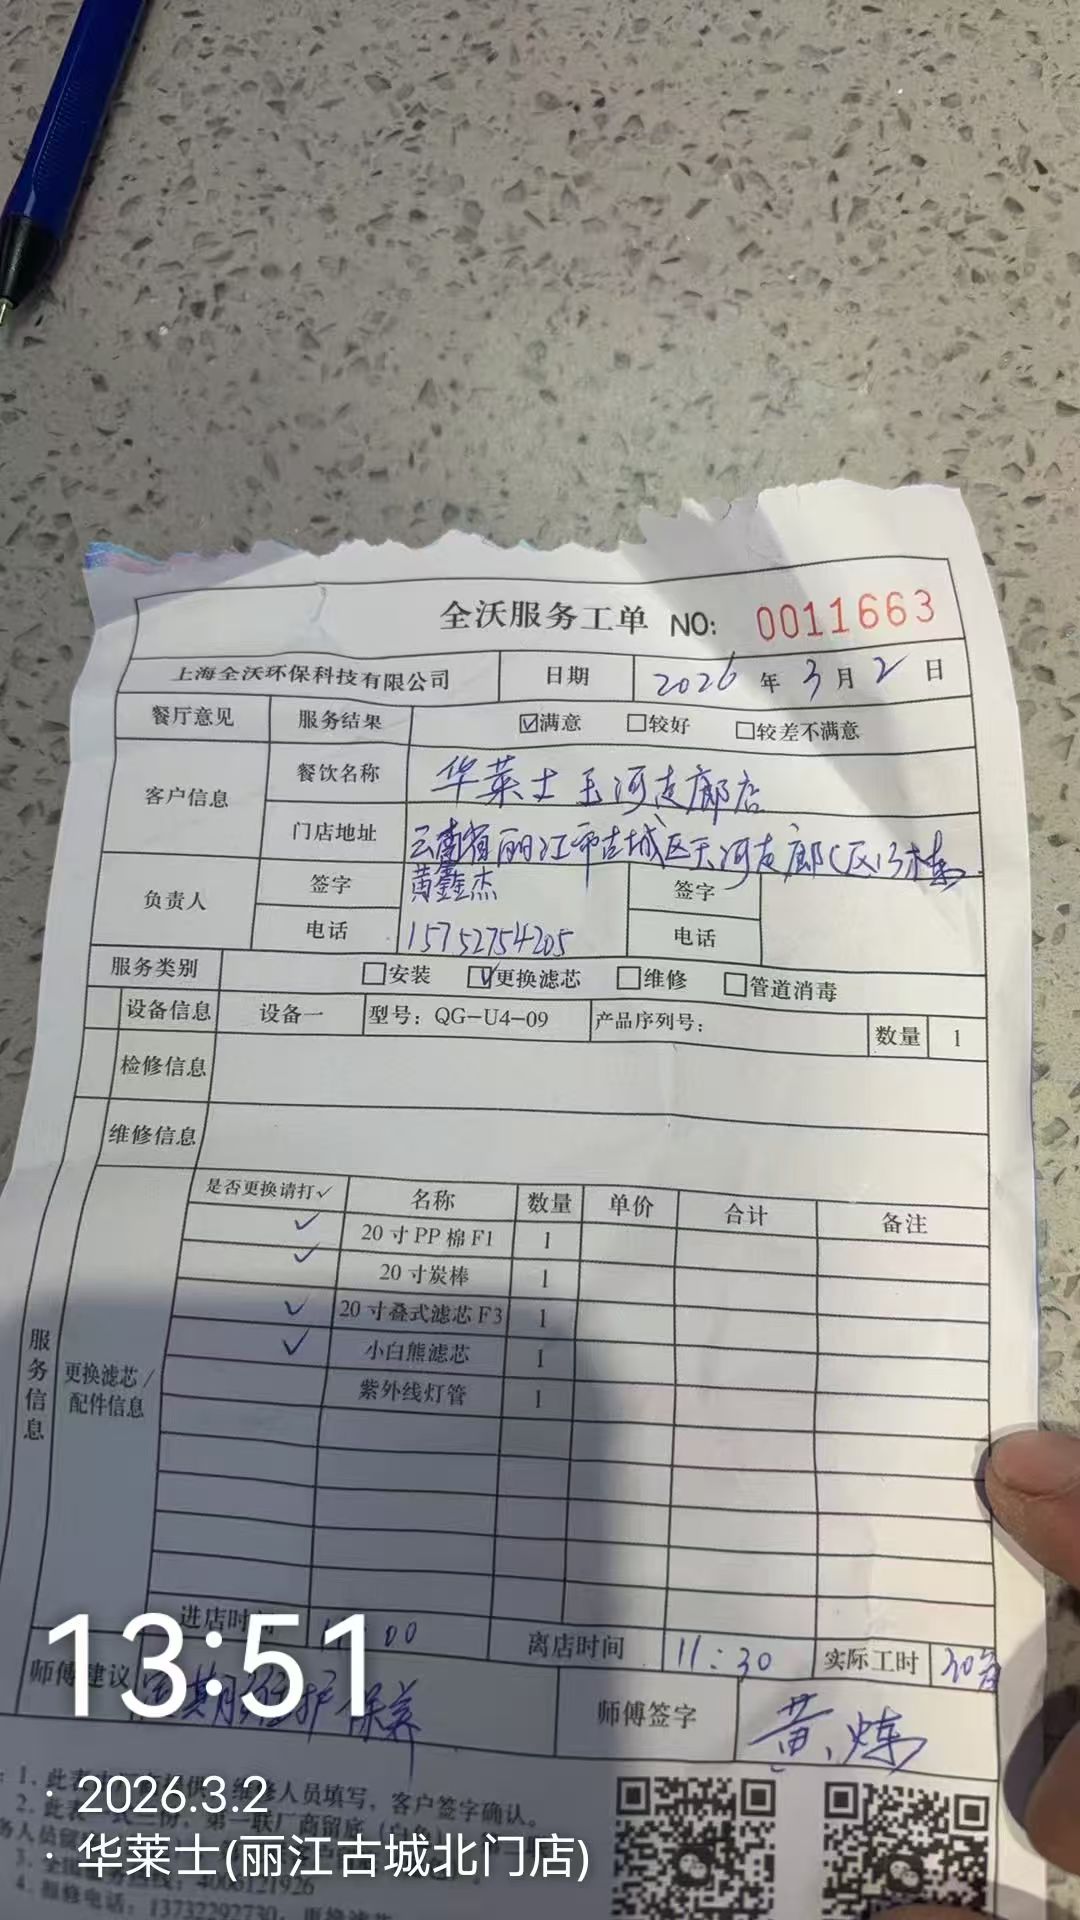 全沃服务工单 NO: 0011663
上海全沃环保科技有限公司 日期 2026 年 3 月 2 日
餐厅意见 服务结果 ☑满意 □较好 □较差不满意
客户信息 餐饮名称 华莱士玉河走廊店
门店地址 云南省丽江市古城区玉河走廊
负责人 签字 黄鑫杰 签字
电话 15752754205 电话
服务类别 □安装 ☑更换滤芯 □维修 □管道消毒
设备信息 设备一 型号：QG-U4-09 产品序列号： 数量 1
检修信息
维修信息
服务信息 更换滤芯/配件信息
是否更换请打✓ 名称 数量 单价 合计 备注
✓ 20寸PP棉F1 1
✓ 20寸炭棒 1
✓ 20寸叠式滤芯F3 1
✓ 小白熊滤芯 1
紫外线灯管 1
进店时间 :00 离店时间 11:30 实际工时 30
师傅建议 定期维护保养 师傅签字 黄炼
13:51
1、此表 维修人员填写，客户签字确认。
2、此表 第一联厂商留底
· 2026.3.2
3、 4006121926
· 华莱士(丽江古城北门店)
4、报修电话：13732292730，更换滤芯